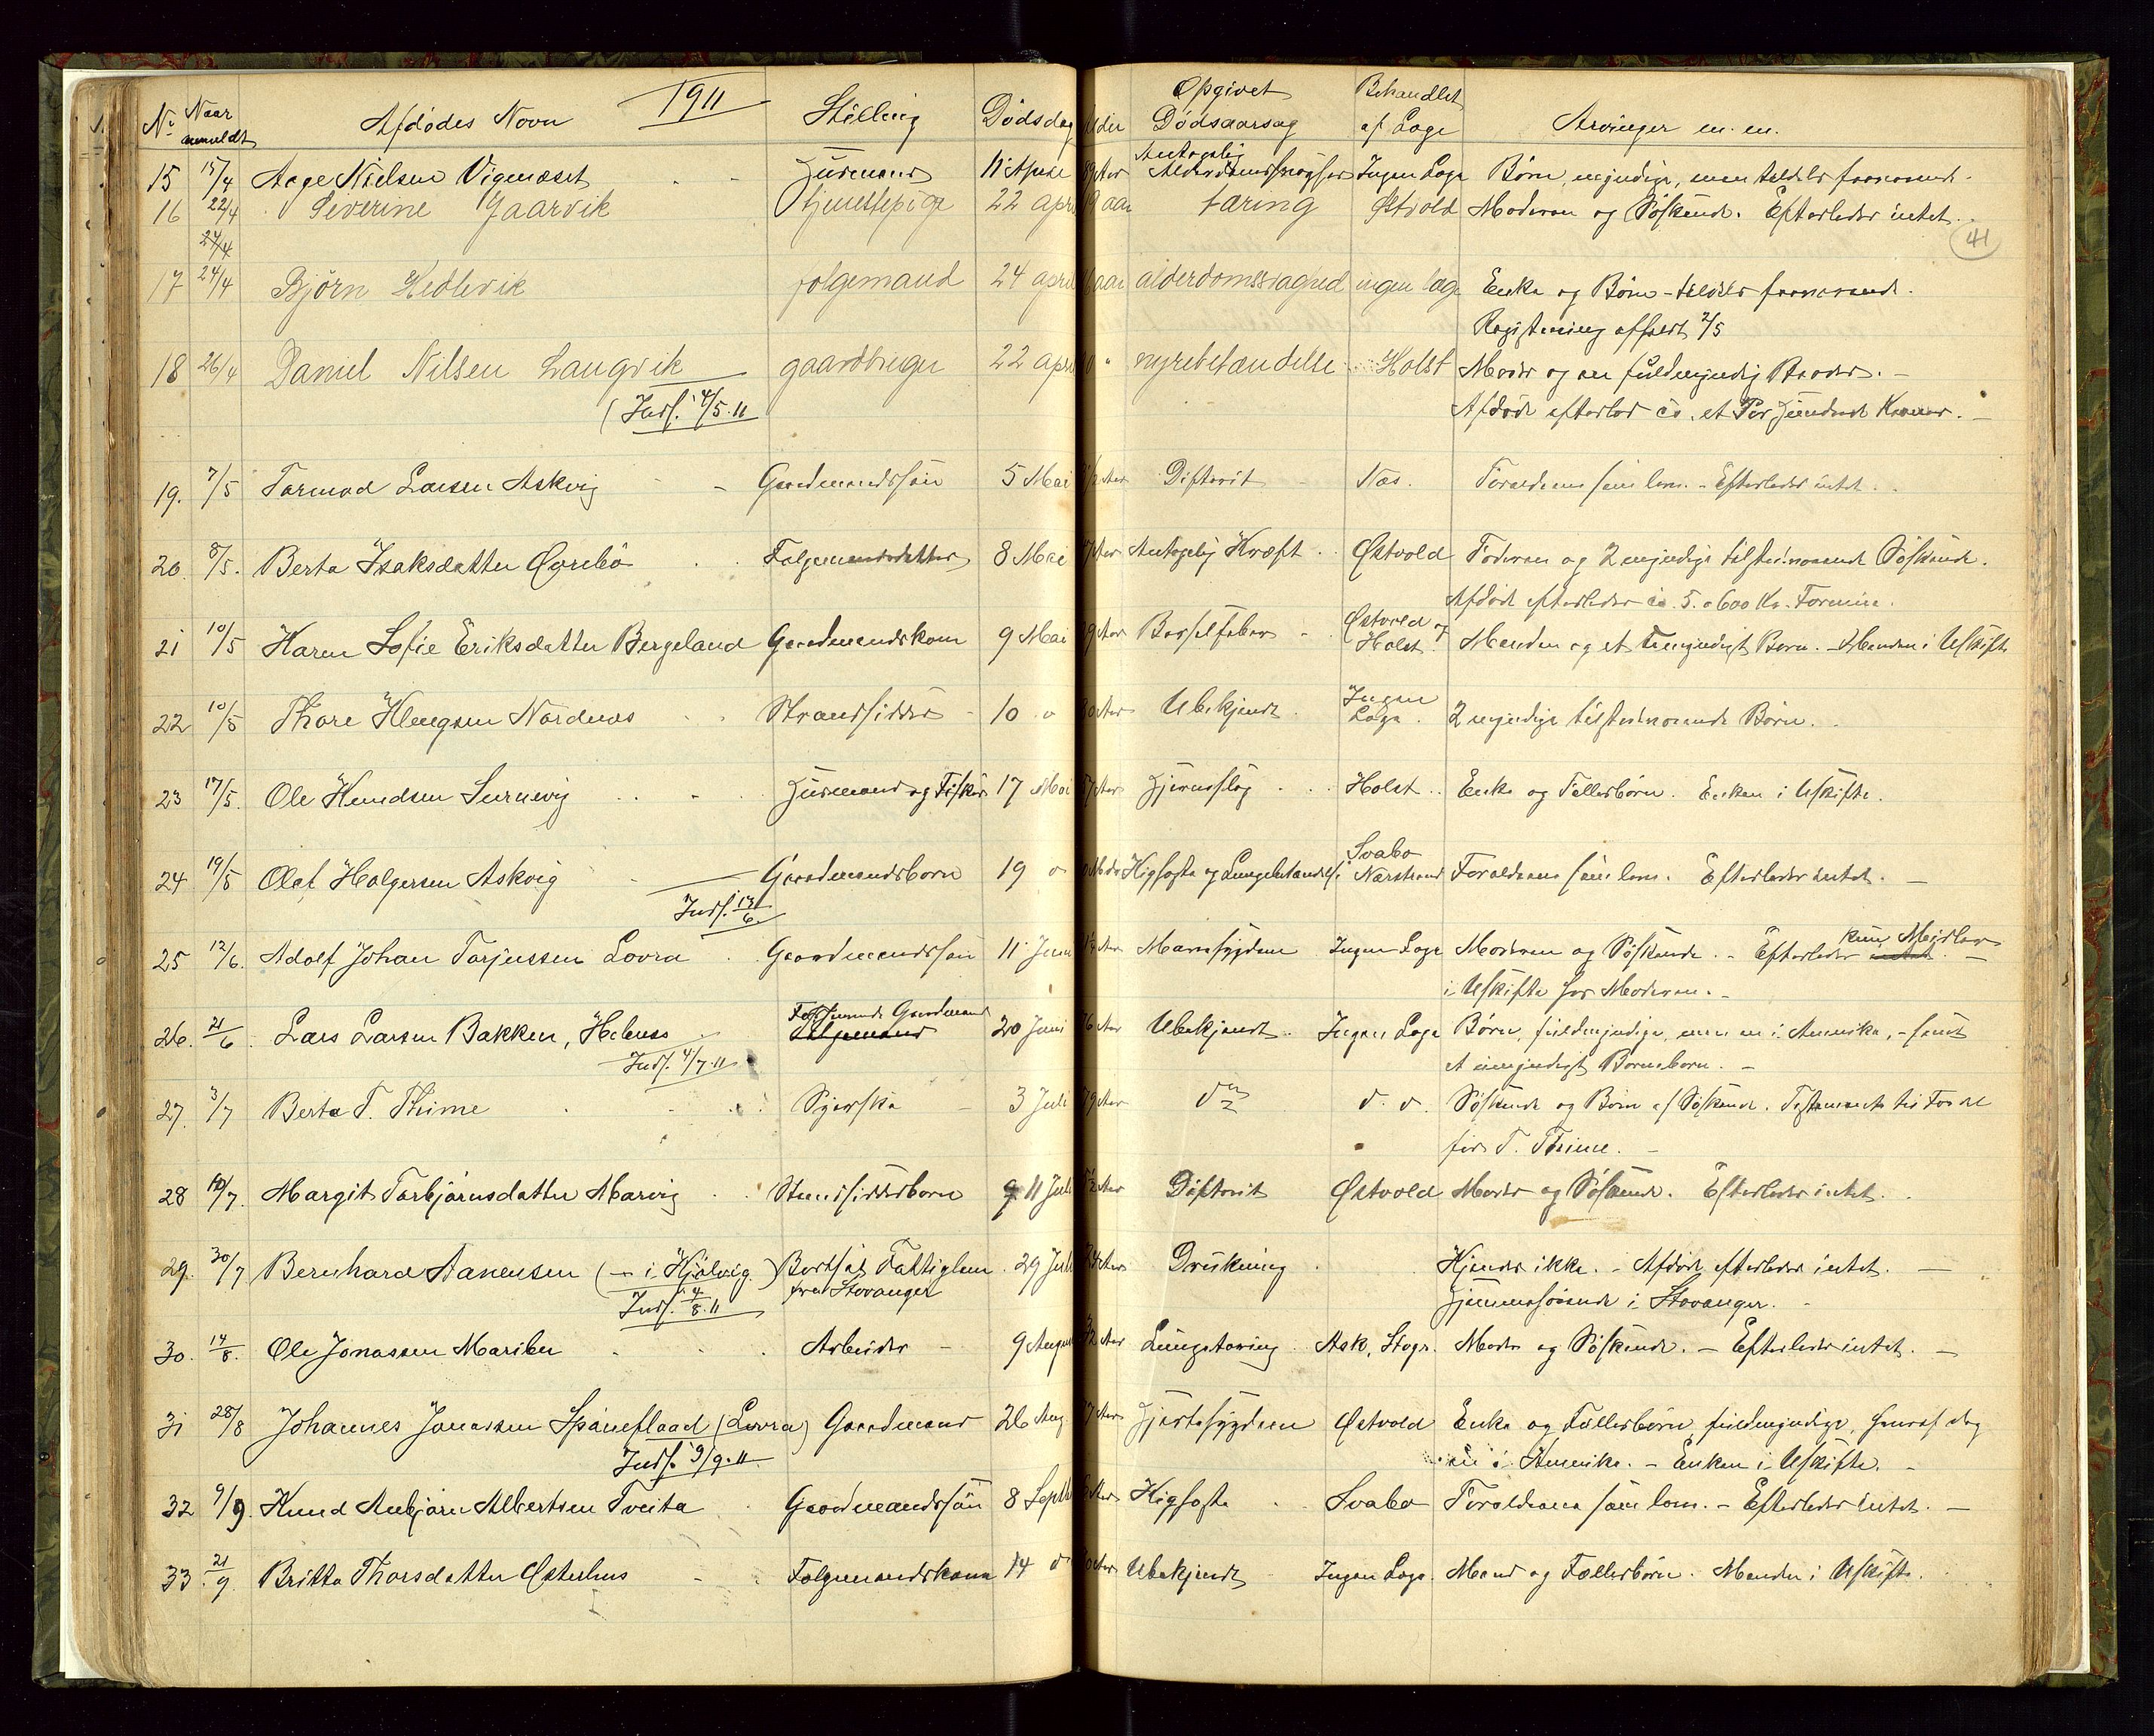 1911
No Naar anmeldt Afdödes Navn Stilling Dödsdag Alder Opgivet Dödsaarsag Behandlet af Læge Arvinger m. m.
15 15/4 Aage Nielsen Vigenæset Husmand 11 April Aar Antagelig Alderdomssvaghed Ingen Læge Börn, myndige, men tildels fraværende.
16 22/4 Severine Gaarvik tjenestepige 22 april 19 aar tæring Østvold Moderen og Söskende. Efterlader intet.
24/4
41
17 24/4 Björn Hedlevik folgemand 24 april aar alderdomssvaghed ingen læge Enke og Börn - tildels fraværende.
Registrering afholdt 2/5
18 26/4 Daniel Nilsen Langvik gaardbruger 22 april " nyrebetændelse Holst Moder og en fuldmyndig Broder. -
(Inds. 4/5.11 Afdöde efterlod ca. et Par Hundrede Kroner. -
19. 7/5 Tormod Larsen Askvig - Gaardmandssön 5 Mai Aar Difterit Næs. Forældrene som leve. - Efterlader intet.
20. 8/5. Berta Isaksdatter Øvrebö Folgemandsdatter 8 Mai Aar Antagelig Kræft Østvold Faderen og 2 myndige tilstedeværende Söskende.
Afdöde efterlader ca. 5. a 600 Kr. Formue.
21 10/5 Karen Sofie Eriksdatter Bergeland Gaardmandskone 9 Mai Aar Barselfeber - Østvold og Holst. Manden og et umyndigt Barn. - Manden i Uskifte
22 10/5 Thore Klengsen Nordnæs Strandsidder - 10 " Aar Ubekjendt Ingen Læge. 2 myndige tilstedeværende Börn.
23 17/5. Ole Knudsen Surnevig Husmand og Fisker 17 Mai Aar Hjerneslag Holst Enke og Fællesbörn. Enken i Uskifte.
24 19/5 Olaf Holgersen Askvig Gaardmandsbarn 19 " Mdr Kighoste og Lungebetændelse Svabo Nærstrand Forældrene som leve. Efterlader intet. -
Inds. 13/6
25 12/6. Adolf Johan Torjussen Lovra Gaardmandssön 11 Juni Aar Mavesygdom Ingen Læge Moderen og Söskende. - Efterlader intet kun Midler
i Uskifte hos Moderen. -
26. 21/6. Lars Larsen Bakken, Hebnes Folgemand Gaardmand 20 Juni 76 Aar Ubekjendt. Ingen Læge Börn, fuldmyndige, men en i Amerika, - samt
Inds. 4/7.11 et umyndigt Barnebarn. -
27. 3/7 Berta T. Thime Syerske - 3 Juli 79 Aar do d. d. Söskende og Börn af Söskende. Testamente til Fordel
for T. Thime. -
28 10/7. Margit Torbjörnsdatter Marvig Strandsidderbarn 9 11 Juli Aar Difterit Østvold Moder og Söskende. Efterlader intet.
29. 30/7 Bernhard Aanensen (- i Hjölvig.) Bortsat Fattiglem fra Stavanger 29 Juli Aar Drukning Kjendes ikke. - Afdöde efterlader intet. -
Inds. 4/8.11 Hjemmehörende i Stavanger. -
30. 14/8. Ole Jonassen Mariber Arbeider - 9 August Aar Lungetæring Ask, Stvgr. Moder og Söskende. - Efterlader intet. -
31 28/8 Johannes Jonassen Späneflaad (Lovra) Gaardmand 26 Aug. Aar Hjertesygdom Østvold Enke og Fællesbörn, fuldmyndige, hvoraf dog
Inds. 9/9.11 en i Amerika. - Enken i Uskifte. -
32 9/9. Knud Anbjörn Albertsen Tveita Gaardmandssön 8 Septbr Aar Kighoste Svabo Forældrene som leve. - Efterlader intet. -
33. 21/9. Britta Thorsdatter Østerhus - Folgemandskone 14 d Aar Ubekjendt Ingen Læge. Mand og Fællesbörn. Manden i Uskifte.